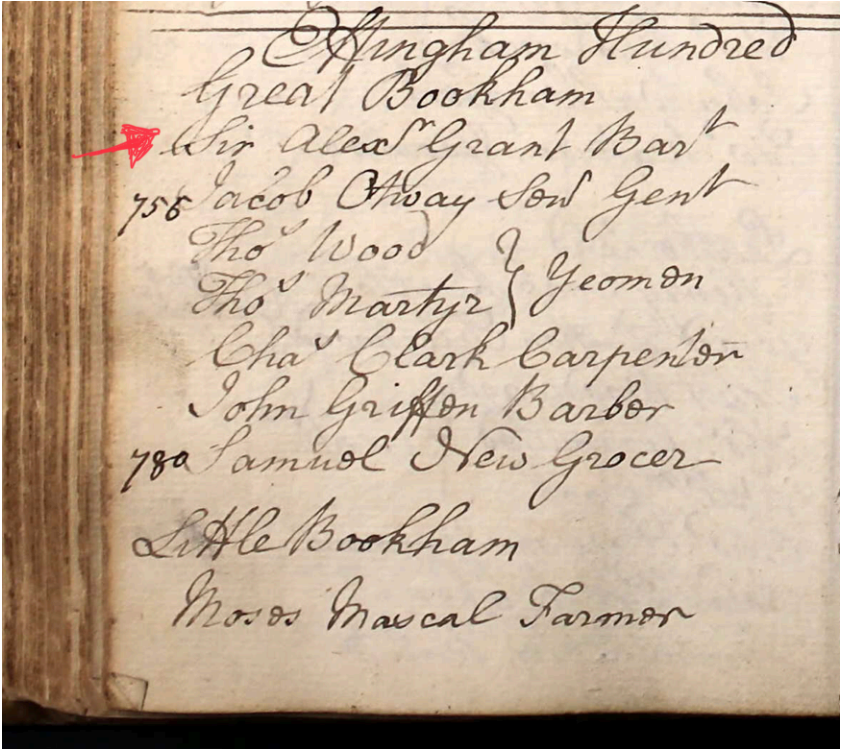 Effingham Hundred
Great Bookham
Sir Alexr Grant Bart
756 Jacob Otway Senr Gent
Thos Wood
Thos Martyr } Yeomen
Chas Clark Carpenter
John Griffen Barber
780 Samuel New Grocer
Little Bookham
Moses Mascal Farmer